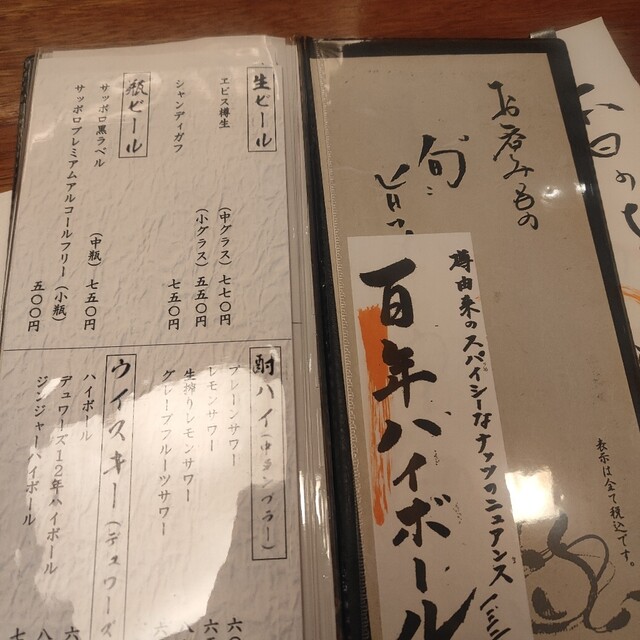 お呑みもの
旬に
百年ハイボール
樽由来のスパイシーなナッツのニュアンス
表示は全て税込です。
生ビール
ヱビス樽生
(中グラス) 七七〇円
(小グラス) 五五〇円
シャンディガフ 七五〇円
瓶ビール
サッポロ黒ラベル (中瓶) 七五〇円
サッポロプレミアムアルコールフリー (小瓶) 五〇〇円
酎ハイ
プレーンサワー
レモンサワー
生搾りレモンサワー
グレープフルーツサワー
ウイスキー (デュワーズ
ハイボール
デュワーズ12年ハイボール
ジンジャーハイボール